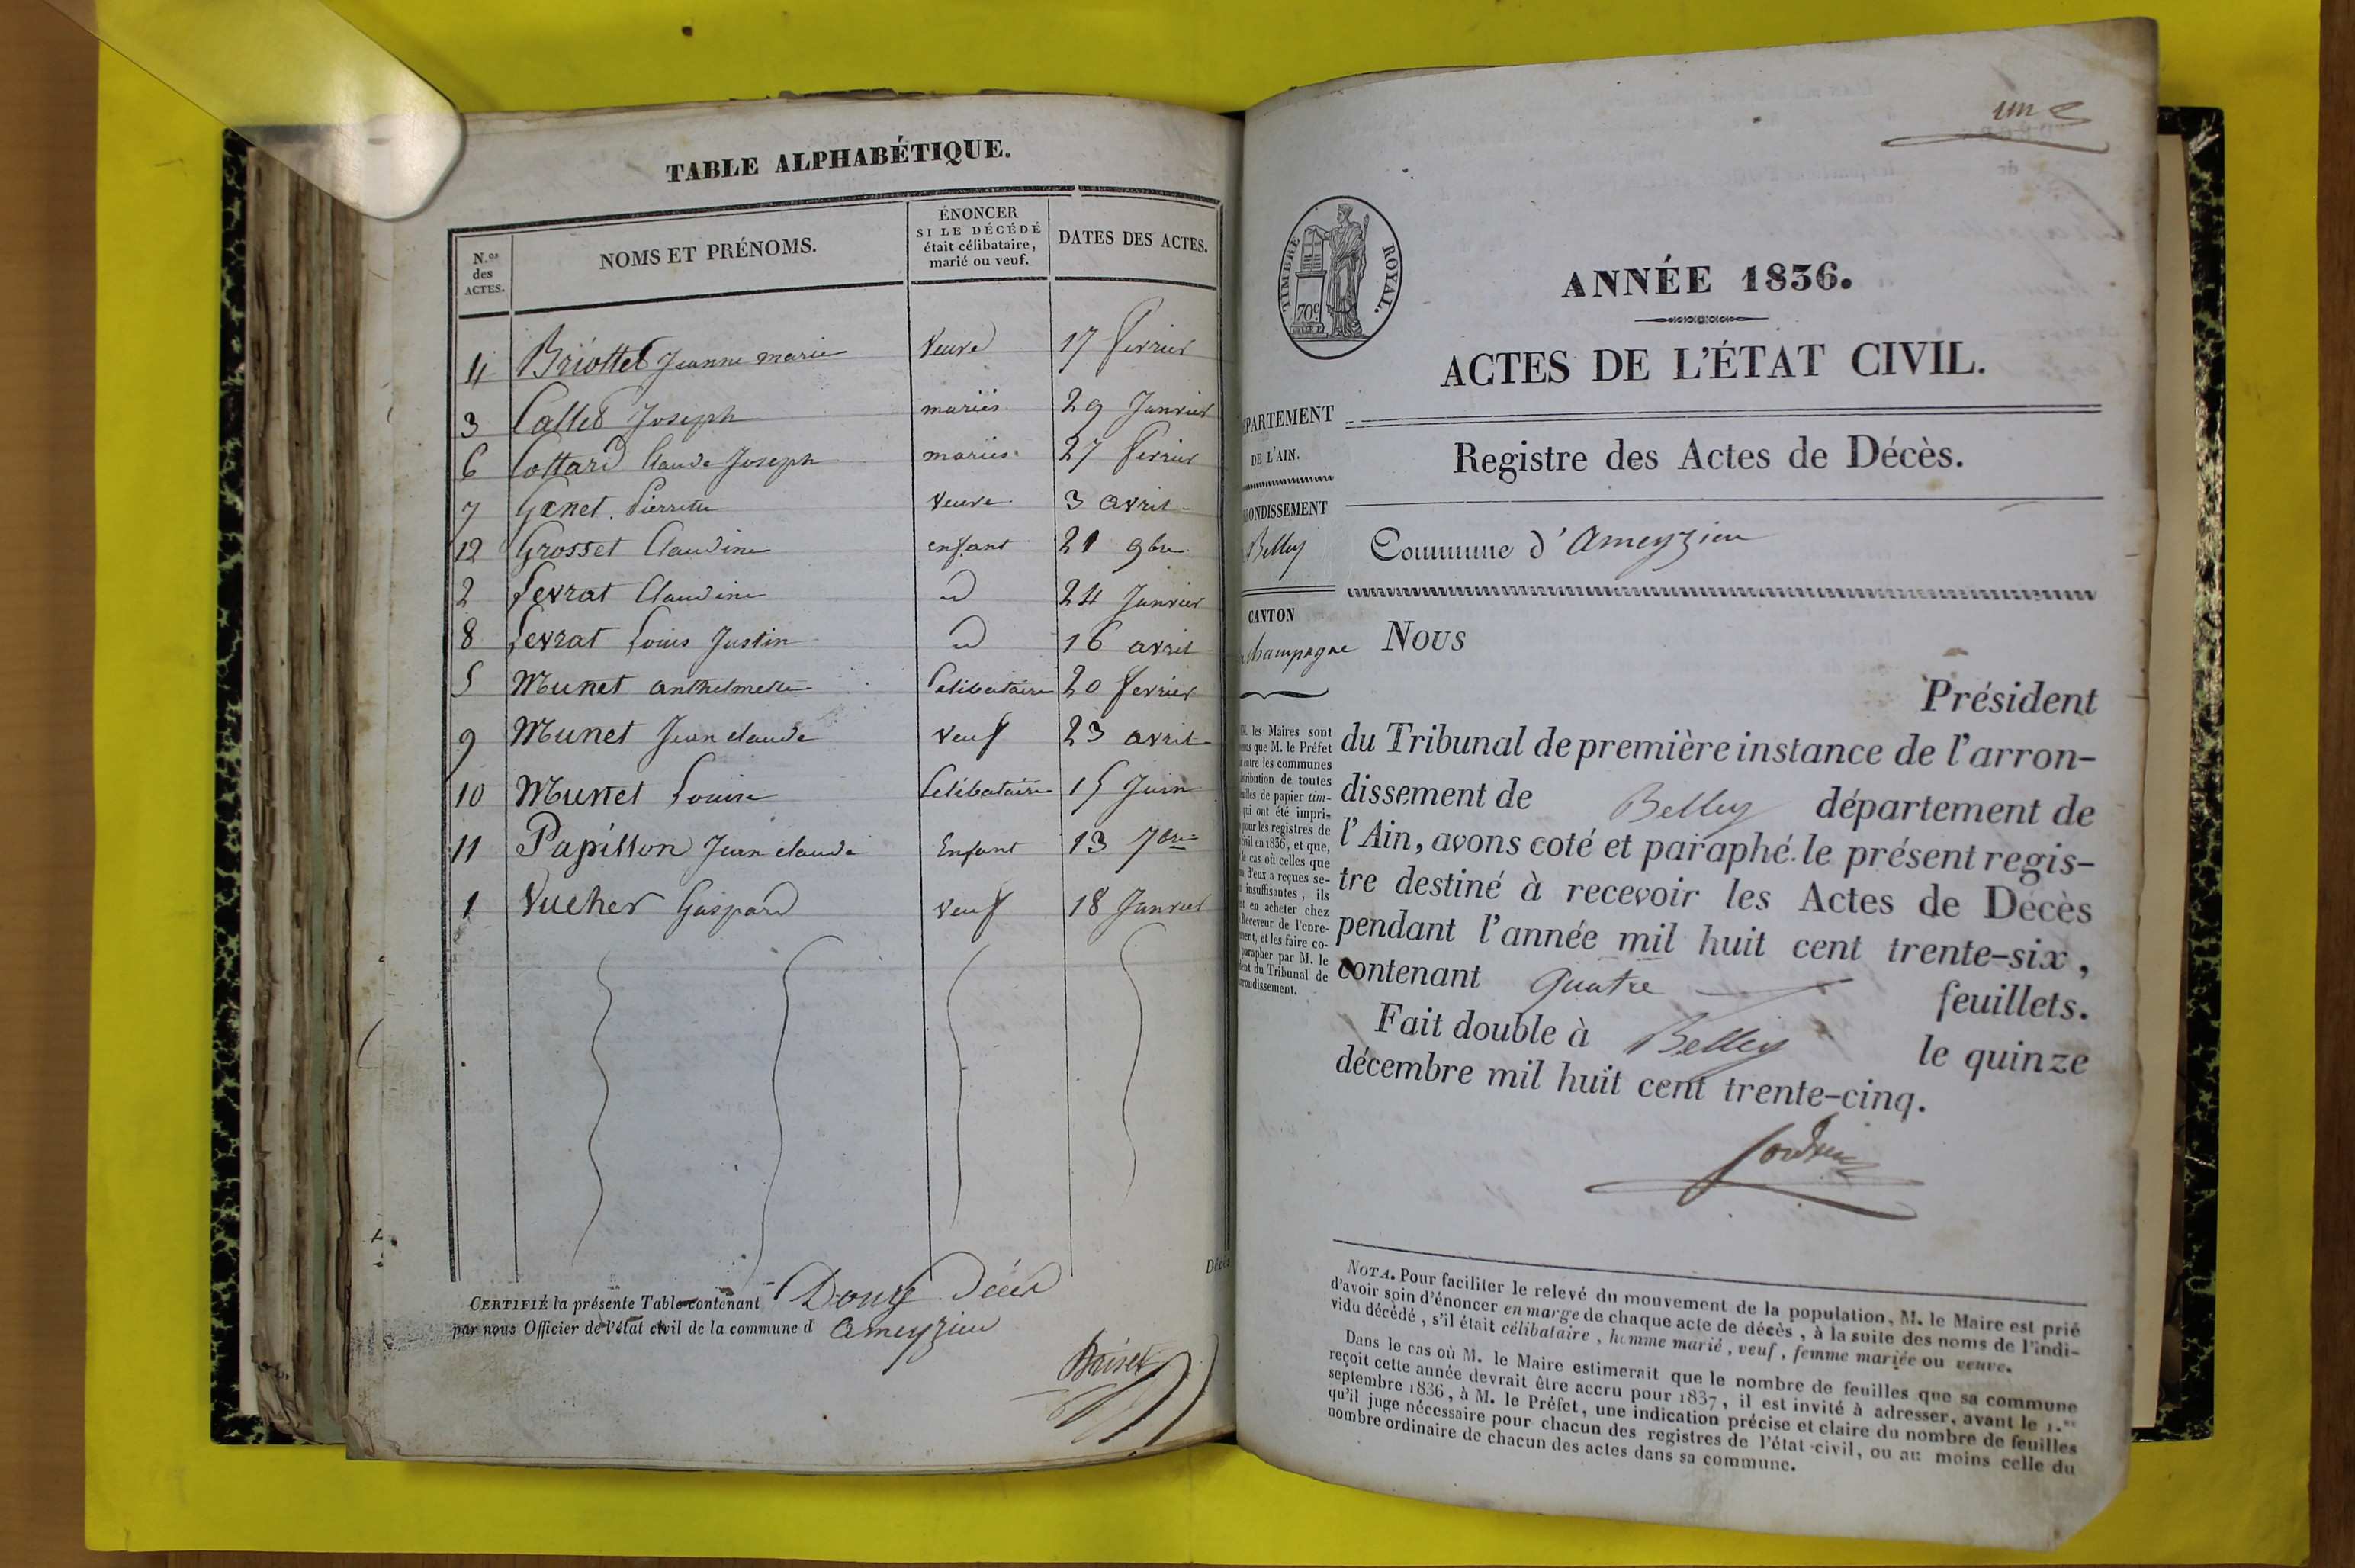 TABLE ALPHABÉTIQUE.
N.os des ACTES.
NOMS ET PRÉNOMS.
ÉNONCER SI LE DÉCÉDÉ était célibataire, marié ou veuf.
DATES DES ACTES.
4 Briottet Jeanne marie veuve 17 fevrier
3 Callet Joseph mariés 29 Janvier
6 Cottard Claude Joseph mariés 27 fevrier
7 Genet Pierrette veuve 3 avril
12 Grosset Claudine enfant 21 9bre
2 Levrat Claudine d 24 Janvier
8 Levrat Louis Justin d 16 avril
5 Munet anthelmette Celibataire 20 fevrier
9 Munet Jean claude veuf 23 avril
10 Munet Louise Celibataire 15 Juin
11 Papillon Jean claude Enfant 13 7bre
1 Vucher Gaspard veuf 18 Janvier
Décès
CERTIFIÉ la présente Table contenant Douze Décès
par nous Officier de l'état civil de la commune d Ameyzieu
un
TIMBRE ROYAL.
70c
ANNÉE 1836.
ACTES DE L'ÉTAT CIVIL.
ÉPARTEMENT
DE L'AIN.
Registre des Actes de Décès.
RONDISSEMENT
Belley
Commune d'Ameyzieu
CANTON
champagne
Nous
Président
du Tribunal de première instance de l'arron-
dissement de Belley département de
l'Ain, avons coté et paraphé le présent regis-
tre destiné à recevoir les Actes de Décès
pendant l'année mil huit cent trente-six,
contenant quatre feuillets.
Fait double à Belley le quinze
décembre mil huit cent trente-cinq.
les Maires sont
que M. le Préfet
entre les communes
tribution de toutes
de papier tim-
qui ont été impri-
pour les registres de
civil en 1836, et que,
le cas où celles que
d'eux a reçues se-
insuffisantes, ils
en acheter chez
Receveur de l'enre-
ment, et les faire co-
parapher par M. le
dent du Tribunal de
rondissement.
NOTA. Pour faciliter le relevé du mouvement de la population, M. le Maire est prié
d'avoir soin d'énoncer en marge de chaque acte de décès, à la suite des noms de l'indi-
vidu décédé, s'il était célibataire, homme marié, veuf, femme mariée ou veuve.
Dans le cas où M. le Maire estimerait que le nombre de feuilles que sa commune
reçoit cette année devrait être accru pour 1837, il est invité à adresser, avant le 1.er
septembre 1836, à M. le Préfet, une indication précise et claire du nombre de feuilles
qu'il juge nécessaire pour chacun des registres de l'état civil, ou au moins celle du
nombre ordinaire de chacun des actes dans sa commune.